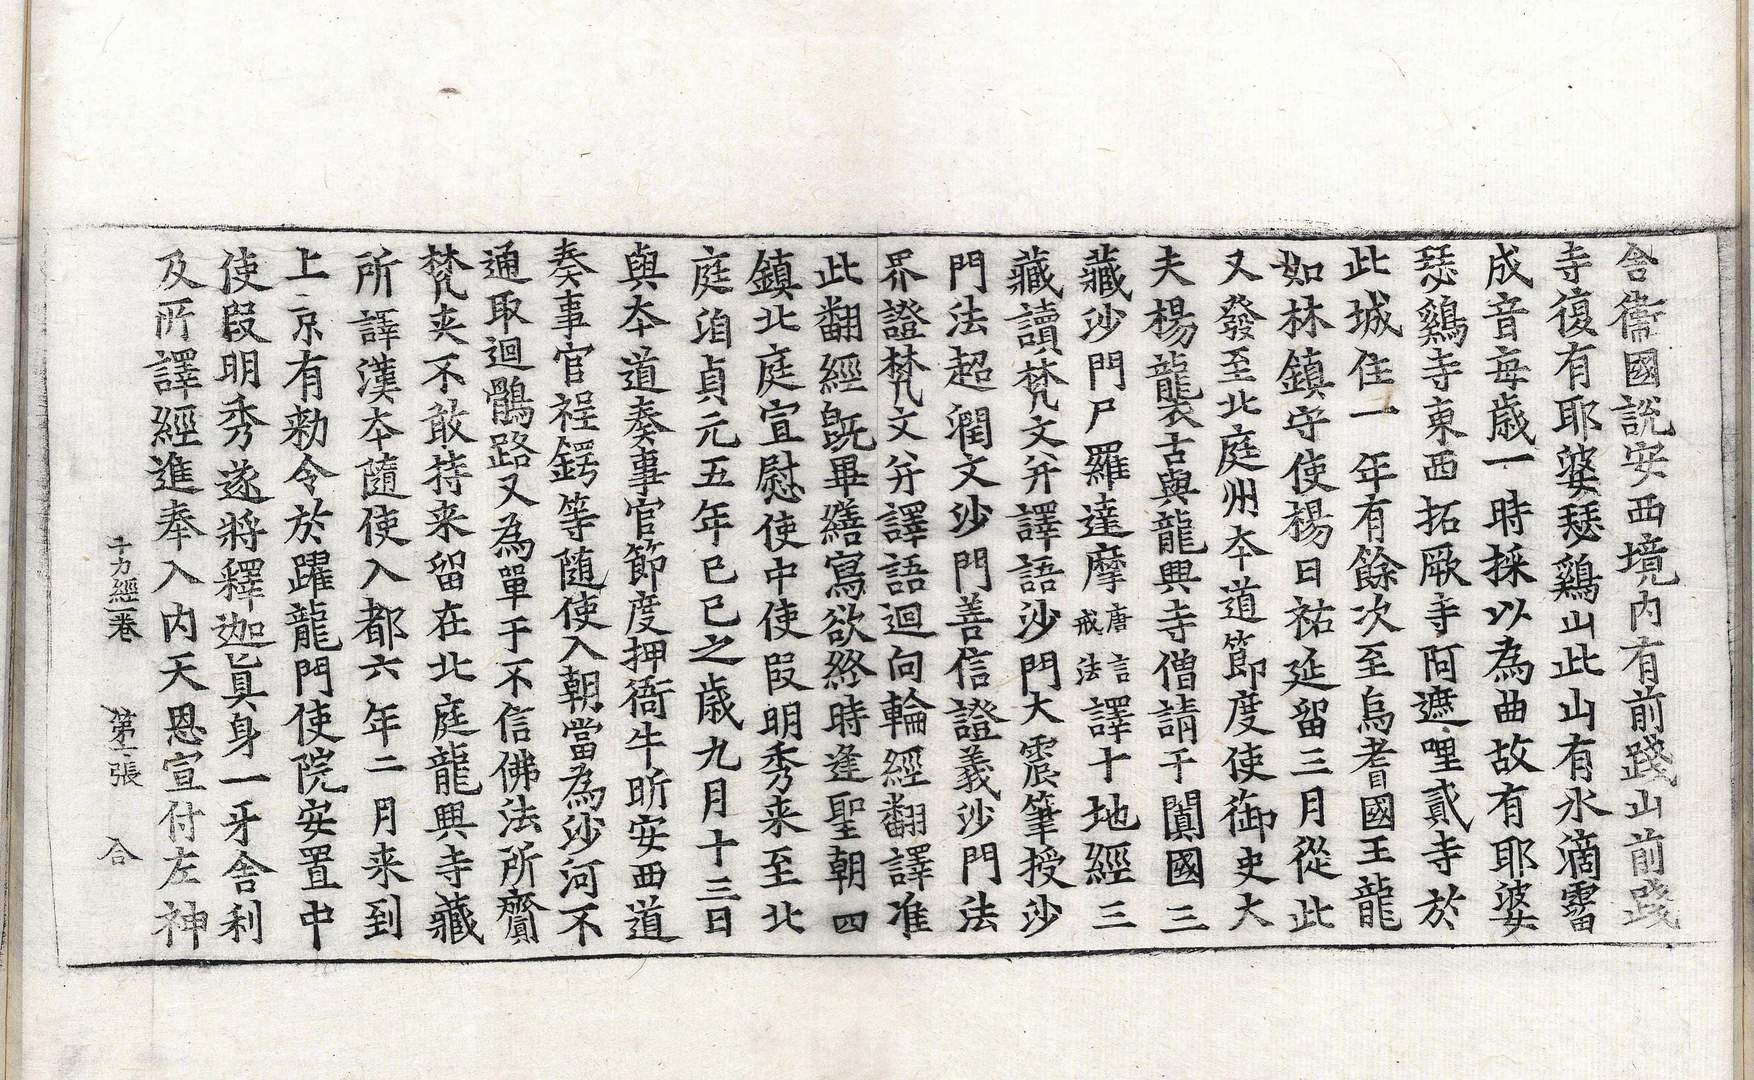 舎衞國說安西境内有前踐山前踐
寺復有耶婆瑟鷄山此山有水滴霤
成音每歲一時採以為曲故有耶婆
瑟鷄寺東西拓厥寺阿遮哩貳寺於
此城住一年有餘次至烏耆國王龍
如林鎮守使楊日祐延留三月從此
又發至北庭州夲道節度使御史大
夫楊襲古與龍興寺僧請于闐國三
藏沙門尸羅達摩唐言戒法譯十地經三
藏讀梵文并譯語沙門大震筆授沙
門法超潤文沙門善信證義沙門法
界證梵文并譯語迴向輪經翻譯准
此翻經旣畢繕寫欲終時逢聖朝四
鎮北庭宣慰使中使段明秀来至北
庭洎貞元五年已已之歲九月十三日
與夲道奏事官節度押衙牛昕安西道
奏事官程鍔等隨使入朝當為沙河不
通取迴鶻路又為單于不信佛法所齎
梵夾不敢持来留在北庭龍興寺藏
所譯漢夲隨使入都六年二月来到
上京有勑令於躍龍門使院安置中
使段明秀遂將釋迦真身一牙舎利
及所譯經進奉入内天恩宣付左神
十力經一卷 第十一張 合